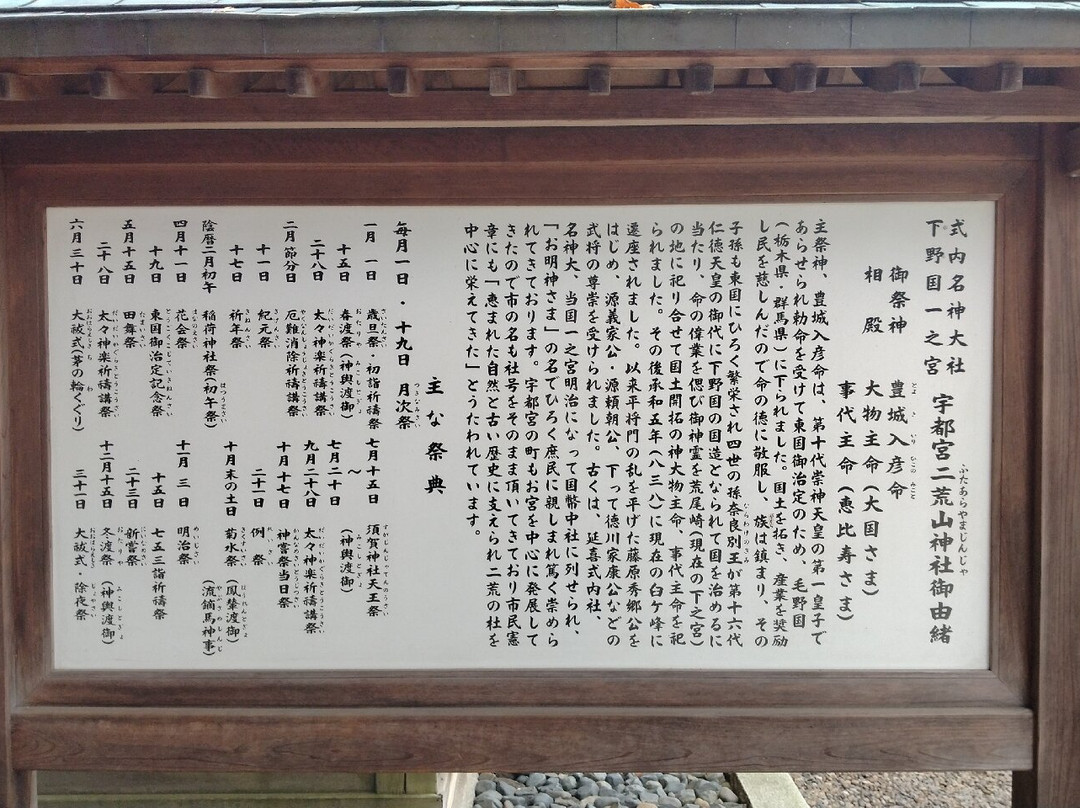 式内名神大社
下野国一之宮
宇都宮二荒山神社御由緒
ふたあらやまじんじゃ
御祭神 豊城入彦命
とよきいりひこのみこと
相殿 大物主命(大国さま)
事代主命(恵比寿さま)
主祭神、豊城入彦命は、第十代崇神天皇の第一皇子で
あらせられ勅命を受けて東国御治定のため、毛野国
(栃木県・群馬県)に下られました。国土を拓き、産業を奨励
し民を慈しんだので命の徳に敬服し、族は鎮まり、その
子孫も東国にひろく繁栄され四世の孫奈良別王が第十六代
仁徳天皇の御代に下野国の国造となられて国を治めるに
当たり、命の偉業を偲び御神霊を荒尾崎(現在の下之宮)
の地に祀り合せて国土開拓の神大物主命、事代主命を祀
られました。その後承和五年(八三八)に現在の臼ケ峰に
遷座されました。以来平将門の乱を平げた藤原秀郷公を
はじめ、源義家公・源頼朝公、下って徳川家康公などの
武将の尊崇を受けられました。古くは、延喜式内社、
名神大、当国一之宮明治になって国幣中社に列せられ、
「お明神さま」の名でひろく庶民に親しまれ篤く崇めら
れてきております。宇都宮の町もお宮を中心に発展して
きたので市の名も社号をそのまま頂いてきており市民憲
章にも「恵まれた自然と古い歴史に支えられ二荒の杜を
中心に栄えてきた」とうたわれています。
主な祭典
毎月一日・十九日 月次祭
一月 一日 歳旦祭・初詣祈禱祭
十五日 春渡祭(神輿渡御)
二十八日 太々神楽祈禱講祭
二月節分日 厄難消除祈禱講祭
十一日 紀元祭
十七日 祈年祭
陰暦二月初午 稲荷神社祭(初午祭)
四月十一日 花会祭
十九日 東国御治定記念祭
五月十五日 田舞祭
二十八日 太々神楽祈禱講祭
六月三十日 大祓式(茅の輪くぐり)
七月十五日 須賀神社天王祭
〜
七月二十日 (神輿渡御)
九月二十八日 太々神楽祈禱講祭
十月十七日 神嘗祭当日祭
二十一日 例祭
十月末の土日 菊水祭(鳳輦渡御)
(流鏑馬神事)
十一月三日 明治祭
十五日 七五三詣祈禱祭
二十三日 新嘗祭
十二月十五日 冬渡祭(神輿渡御)
三十一日 大祓式・除夜祭